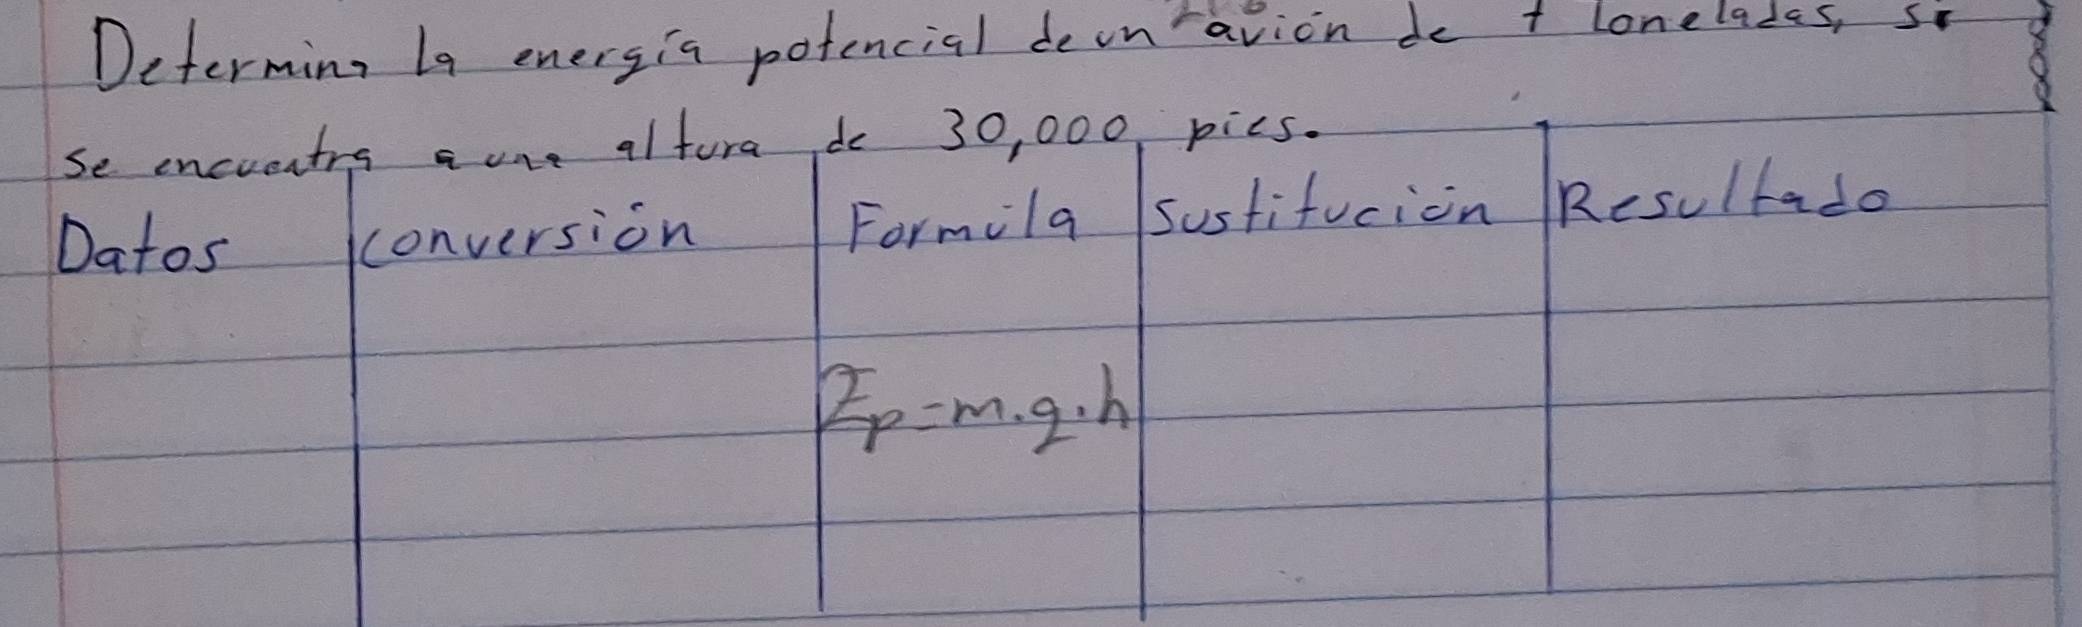 Determina la energía potencial de un avión de toneladas, si
se encuentra a una altura de 30,000 pies.
Datos conversión Formula Sustitución Resultado
Ep=m.g.h